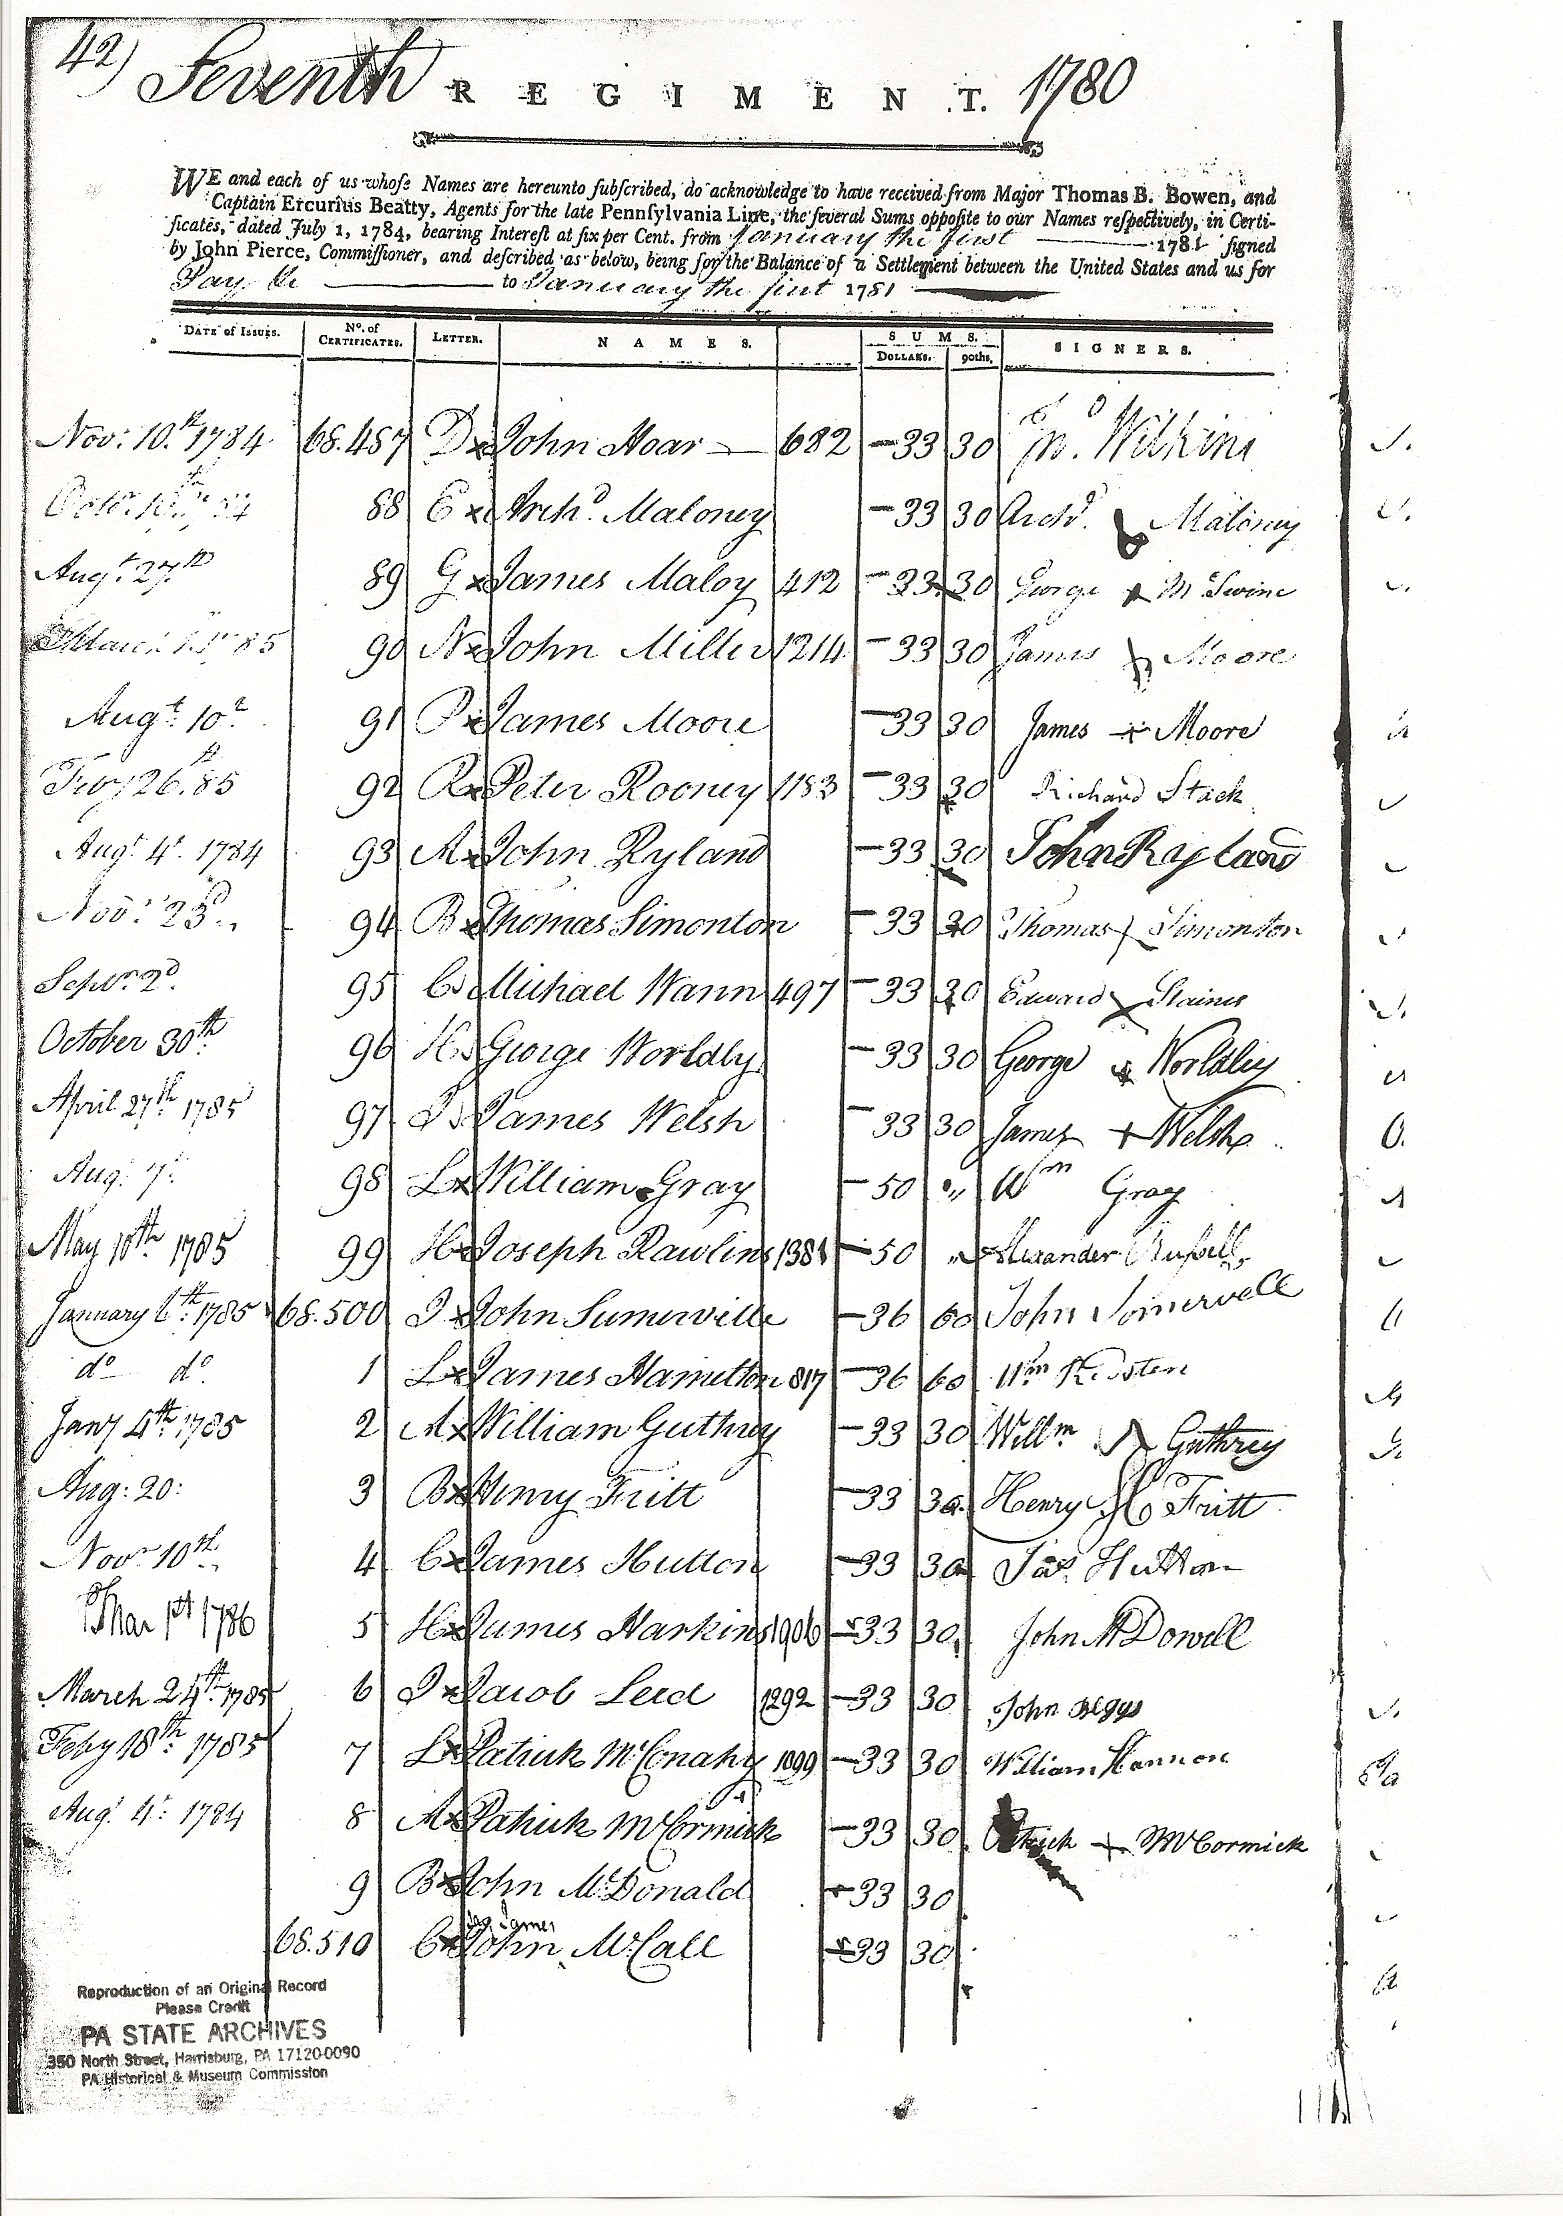 42) Seventh REGIMENT. 1780
WE and each of us whose Names are hereunto subscribed, do acknowledge to have received from Major Thomas B. Bowen, and
Captain Ercurius Beatty, Agents for the late Pennsylvania Line, the several Sums opposite to our Names respectively, in Certi-
ficates, dated July 1, 1784, bearing Interest at six per Cent. from January the first 1781 signed
by John Pierce, Commissioner, and described as below, being for the Balance of a Settlement between the United States and us for
Pay &c to January the first 1781
DATE of ISSUES. No. of CERTIFICATES. LETTER. NAMES. SUMS. DOLLARS. 90ths. SIGNERS.
Nov: 10.th 1784 68.487 D x John Hoar 682 33 30 Jno. Wilkins
88 E x Archd. Maloney 33 30 Archd. Maloney
Augt. 27th 89 G x James Maloy 412 33 30 George x McSwine
March 85 90 N x John Miller 1214 33 30 James Moore
Augt. 10th 91 P x James Moore 33 30 James x Moore
Feby 26th. 85 92 R x Peter Rooney 1183 33 30 Richard Stack
Augt. 4t. 1784 93 A x John Ryland 33 30 John Ryland
Novr. 23d 94 B x Thomas Simonton 33 30 Thomas Simonton
Sepr. 2d. 95 C Michael Wann 497 33 30 Edward X Staines
October 30th 96 H George Worldly 33 30 George x Worldley
April 27th 1785 97 I James Welsh 33 30 James + Welsh
Aug: 7t. 98 L x William Gray 50 " Wm Gray
May 10th 1785 99 H x Joseph Rawlins 1381 50 " Alexander Russell
January 6th 1785 68.500 I x John Sumerville 36 60 John Somervell
do do. 1 L x James Hamilton 817 36 60 Wm
Jany 4th 1785 2 A x William Guthrey 33 30 Willm Guthrey
Aug: 20: 3 B x Henry Fritt 33 30 Henry H Fritt
Novr 10th 4 C x James Hutton 33 30 Jas. Hutton
Mar 1st 1786 5 H x James Harkins 1906 33 30 John McDowell
March 24th 1785 6 I x Jacob Leed 1292 33 30 John Beggs
Feby 18th 1785 7 L x Patrick McConahy 1099 33 30 William Hannon
Augt 4t: 1784 8 A x Patrick McCormick 33 30 Patrick + McCormick
9 B x John McDonald 33 30
James
68.510 C x John McCall 33 30
Reproduction of an Original Record
Please Credit
PA STATE ARCHIVES
350 North Street, Harrisburg, PA 17120-0090
PA Historical & Museum Commission